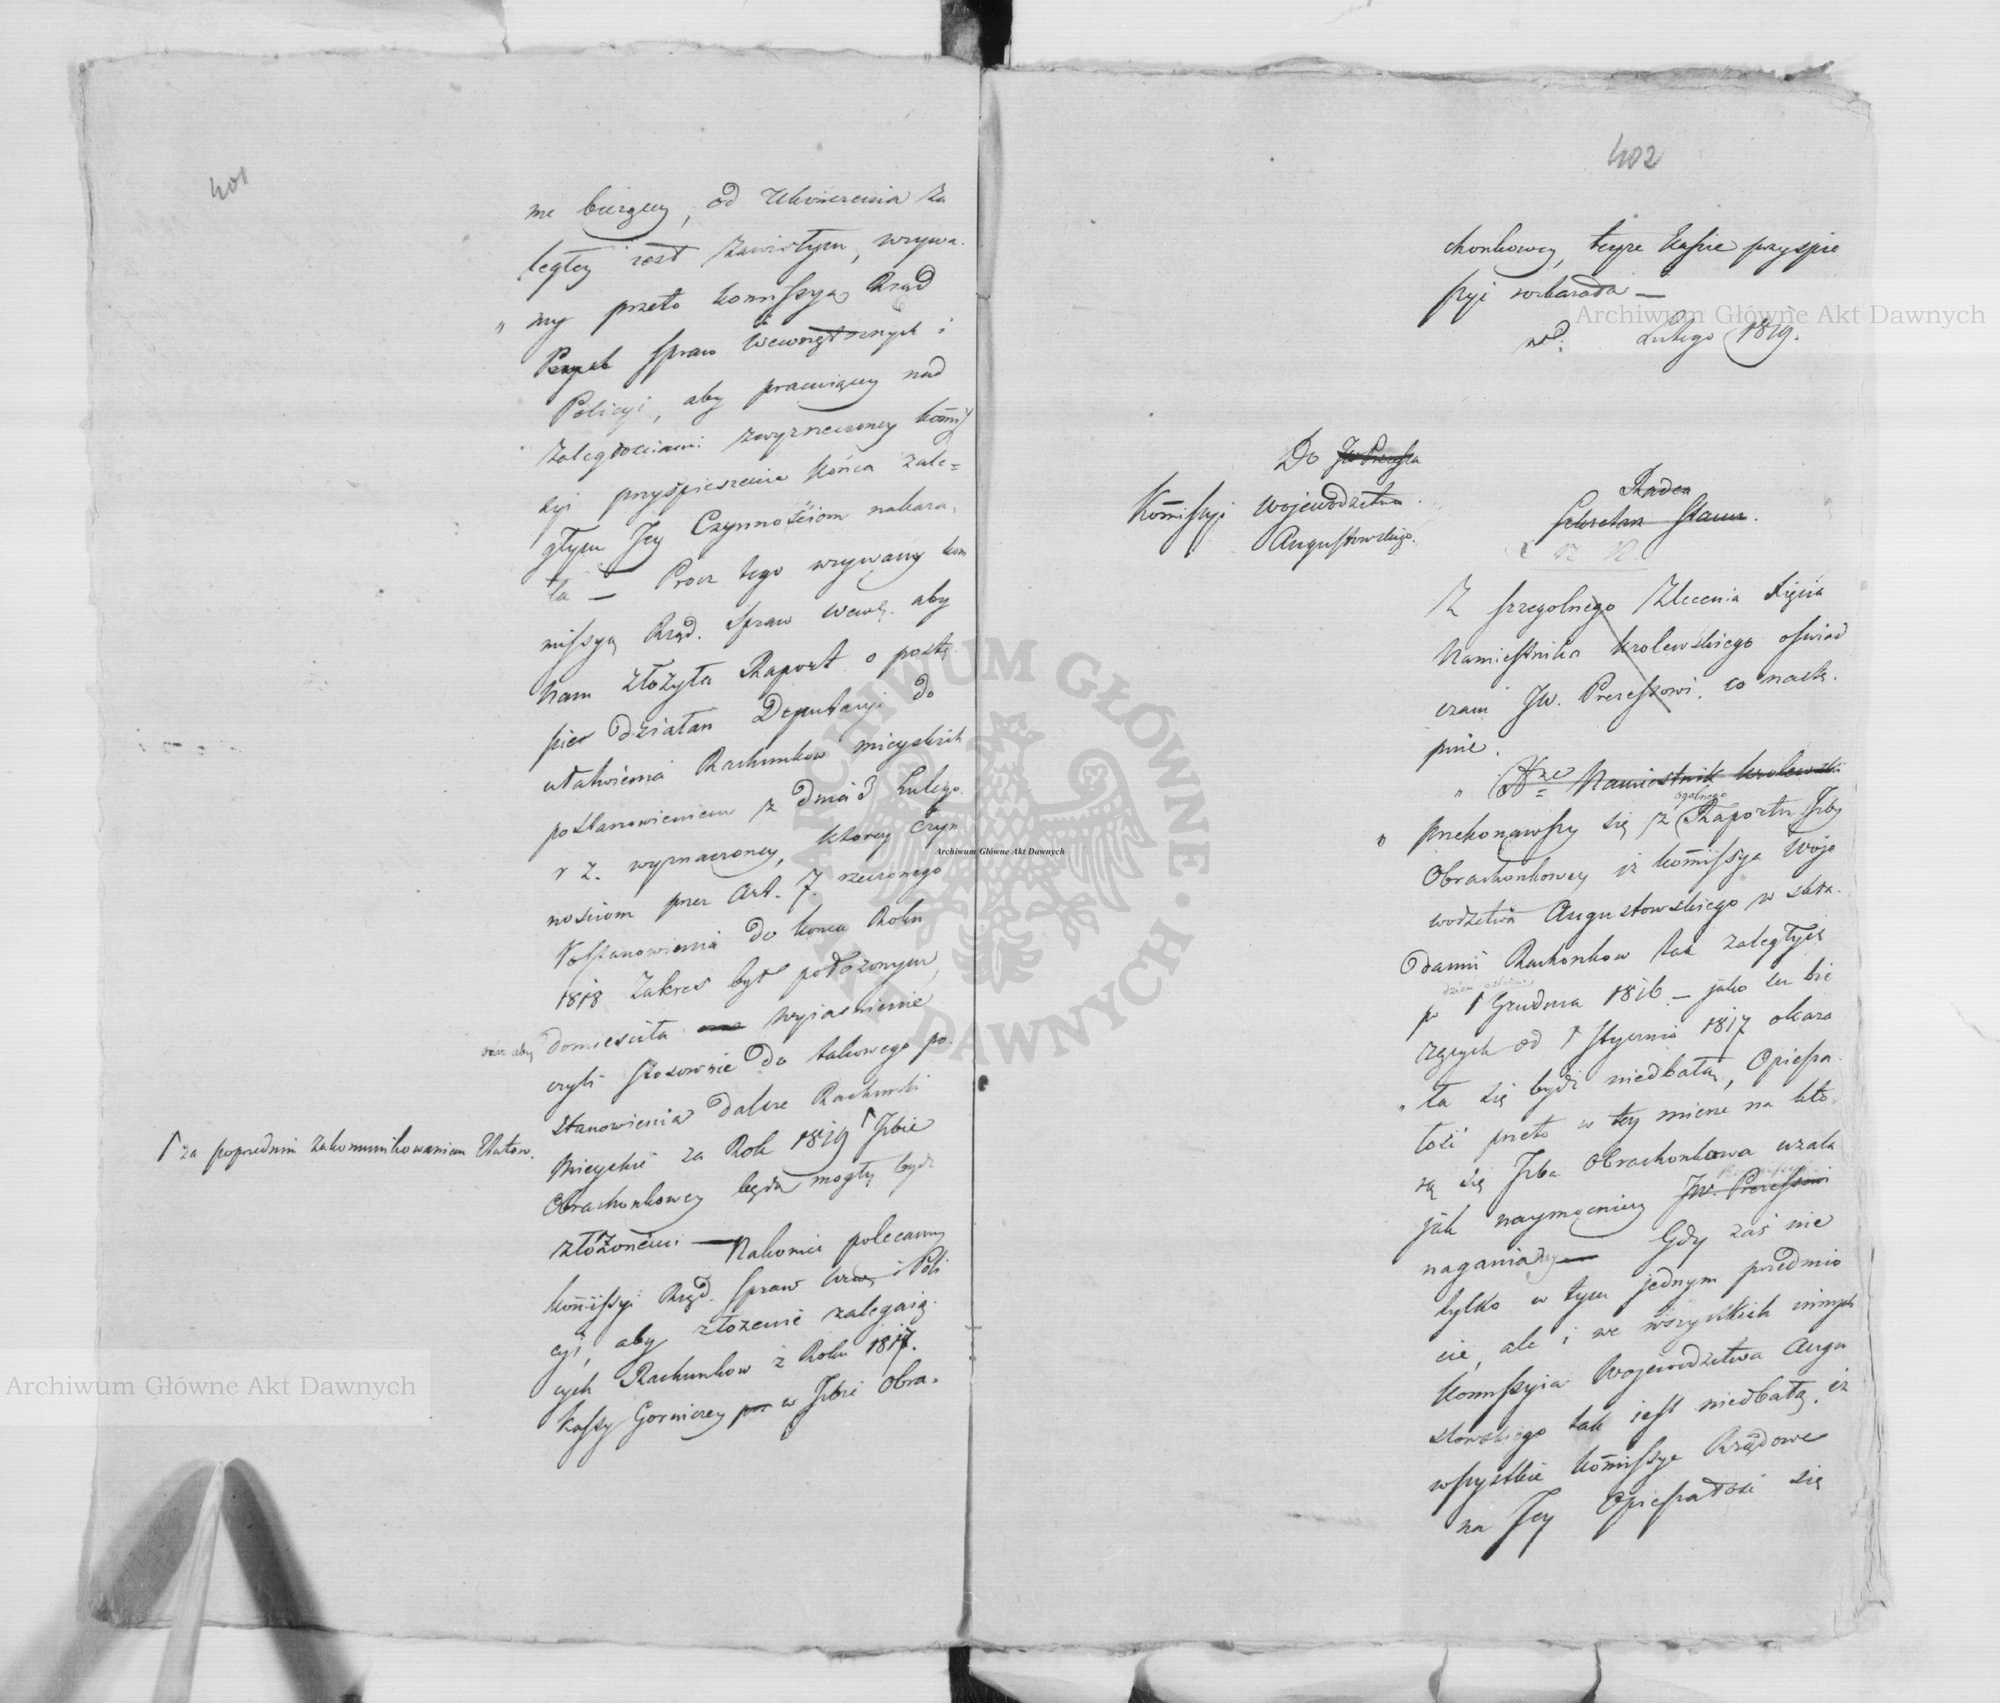 401
me bieżącey, od ukończenia za
ległey iest zawisłym, wzywa
my przeto Kommissyą Rząd
Spraw Wewnętrznych i
Policyi, aby pracuiącey nad
zaległościami wyznaczoney Komis
syi przyśpieszenie końca zale=
głym Jey Czynnościom nakaza
ła — Prócz tego wzywamy Kom
missyą Rząd. Spraw Wewn. aby
Nam złożyła Raport o postę
pie działań Deputacyi do
ułatwienia Rachunkow mieyskich
postanowieniem z dnia 3 Lutego
r z. wyznaczoney, ktorey Czyn
nościom przez Art. 7. rzeczonego
Postanowienia do końca Roku
1818 Zakres był położonym,
oraz aby domieściła wyiaśnienie
czyli stosownie do takowego po
stanowienia dalsze Rachunki
Mieyskie za Rok 1819 Izbie
za poprzednim zakomunikowaniem
Obrachonkowey będą mogły bydź
złożonemi — Nakoniec polecamy
Kommissyi Rząd. Spraw Wew. i Poli
cyi, aby złożenie zalegaią
cych Rachunkow z Roku 1817.
Kassy Gorniczey w Izbie Obra=
402
chonkowey, teyże Kassie przyspie
szyć nakazała —
w d: Lutego 1819.
Do JW Prezesa
Kommissyi Woiewodztwa
Augustowskiego.
Radca
Sekretarz Stanu.
Z szczególnego Zlecenia Xięcia
Namiestnika Krolewskiego oświad
czam JW. Prezesowi. co nastę.
puie.
Xże Namiestnik Krolewski
przekonawszy się z Raportu Izby
Obrachonkowey iż Kommissya Woje
wodztwa Augustowskiego w skła
daniu Rachonkow tak zaległych
po 1 Grudnia 1816 — jako też bie
żących od 1 Stycznia 1817 okaza
ła się bydź niedbałą, Opiesza
łość przeto w tey mierze na któ
rą się Izba Obrachonkowa użala
jak naymocniey JW. Prezesowi
nagania — Gdy zaś nie
tylko w tym jednym przedmio
cie, ale i we wszystkich innych
Kommissyia Woiewodztwa Augu
stowskiego tak iest niedbałą, iż
wszystkie Kommissye Rządowe
na Jey Opieszałość się
Archiwum Główne Akt Dawnych
Archiwum Główne Akt Dawnych
Archiwum Główne Akt Dawnych
ARCHIWUM GŁÓWNE · AKT DAWNYCH ·